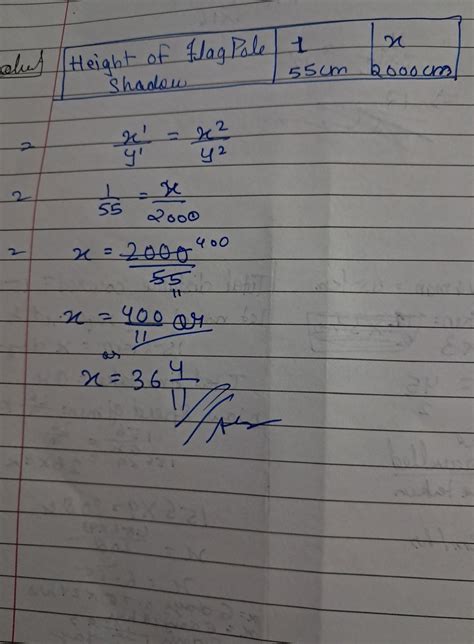 Height of Flag Pole 1 x
Shadow 55cm 2000cm
= x¹/y¹ = x²/y²
= 1/55 = x/2000
= x = 2000 400/55 11
x = 400/11 or
or
x = 36 4/11